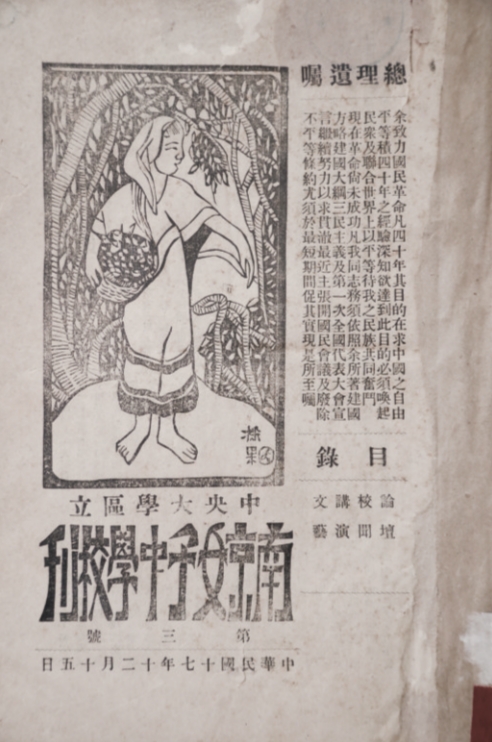 總理遺囑
余致力國民革命凡四十年其目的在求中國之自由
平等積四十年之經驗深知欲達到此目的必須喚起
民衆及聯合世界上以平等待我之民族共同奮鬥
現在革命尚未成功凡我同志務須依照余所著建國
方略建國大綱三民主義及第一次全國代表大會宣
言繼續努力以求貫澈最近主張開國民會議及廢除
不平等條約尤須於最短期間促其實現是所至囑
目錄
論壇
校聞
講演
文藝
中央大學區立
南京女子中學校刊
第三號
中華民國十七年十二月十五日